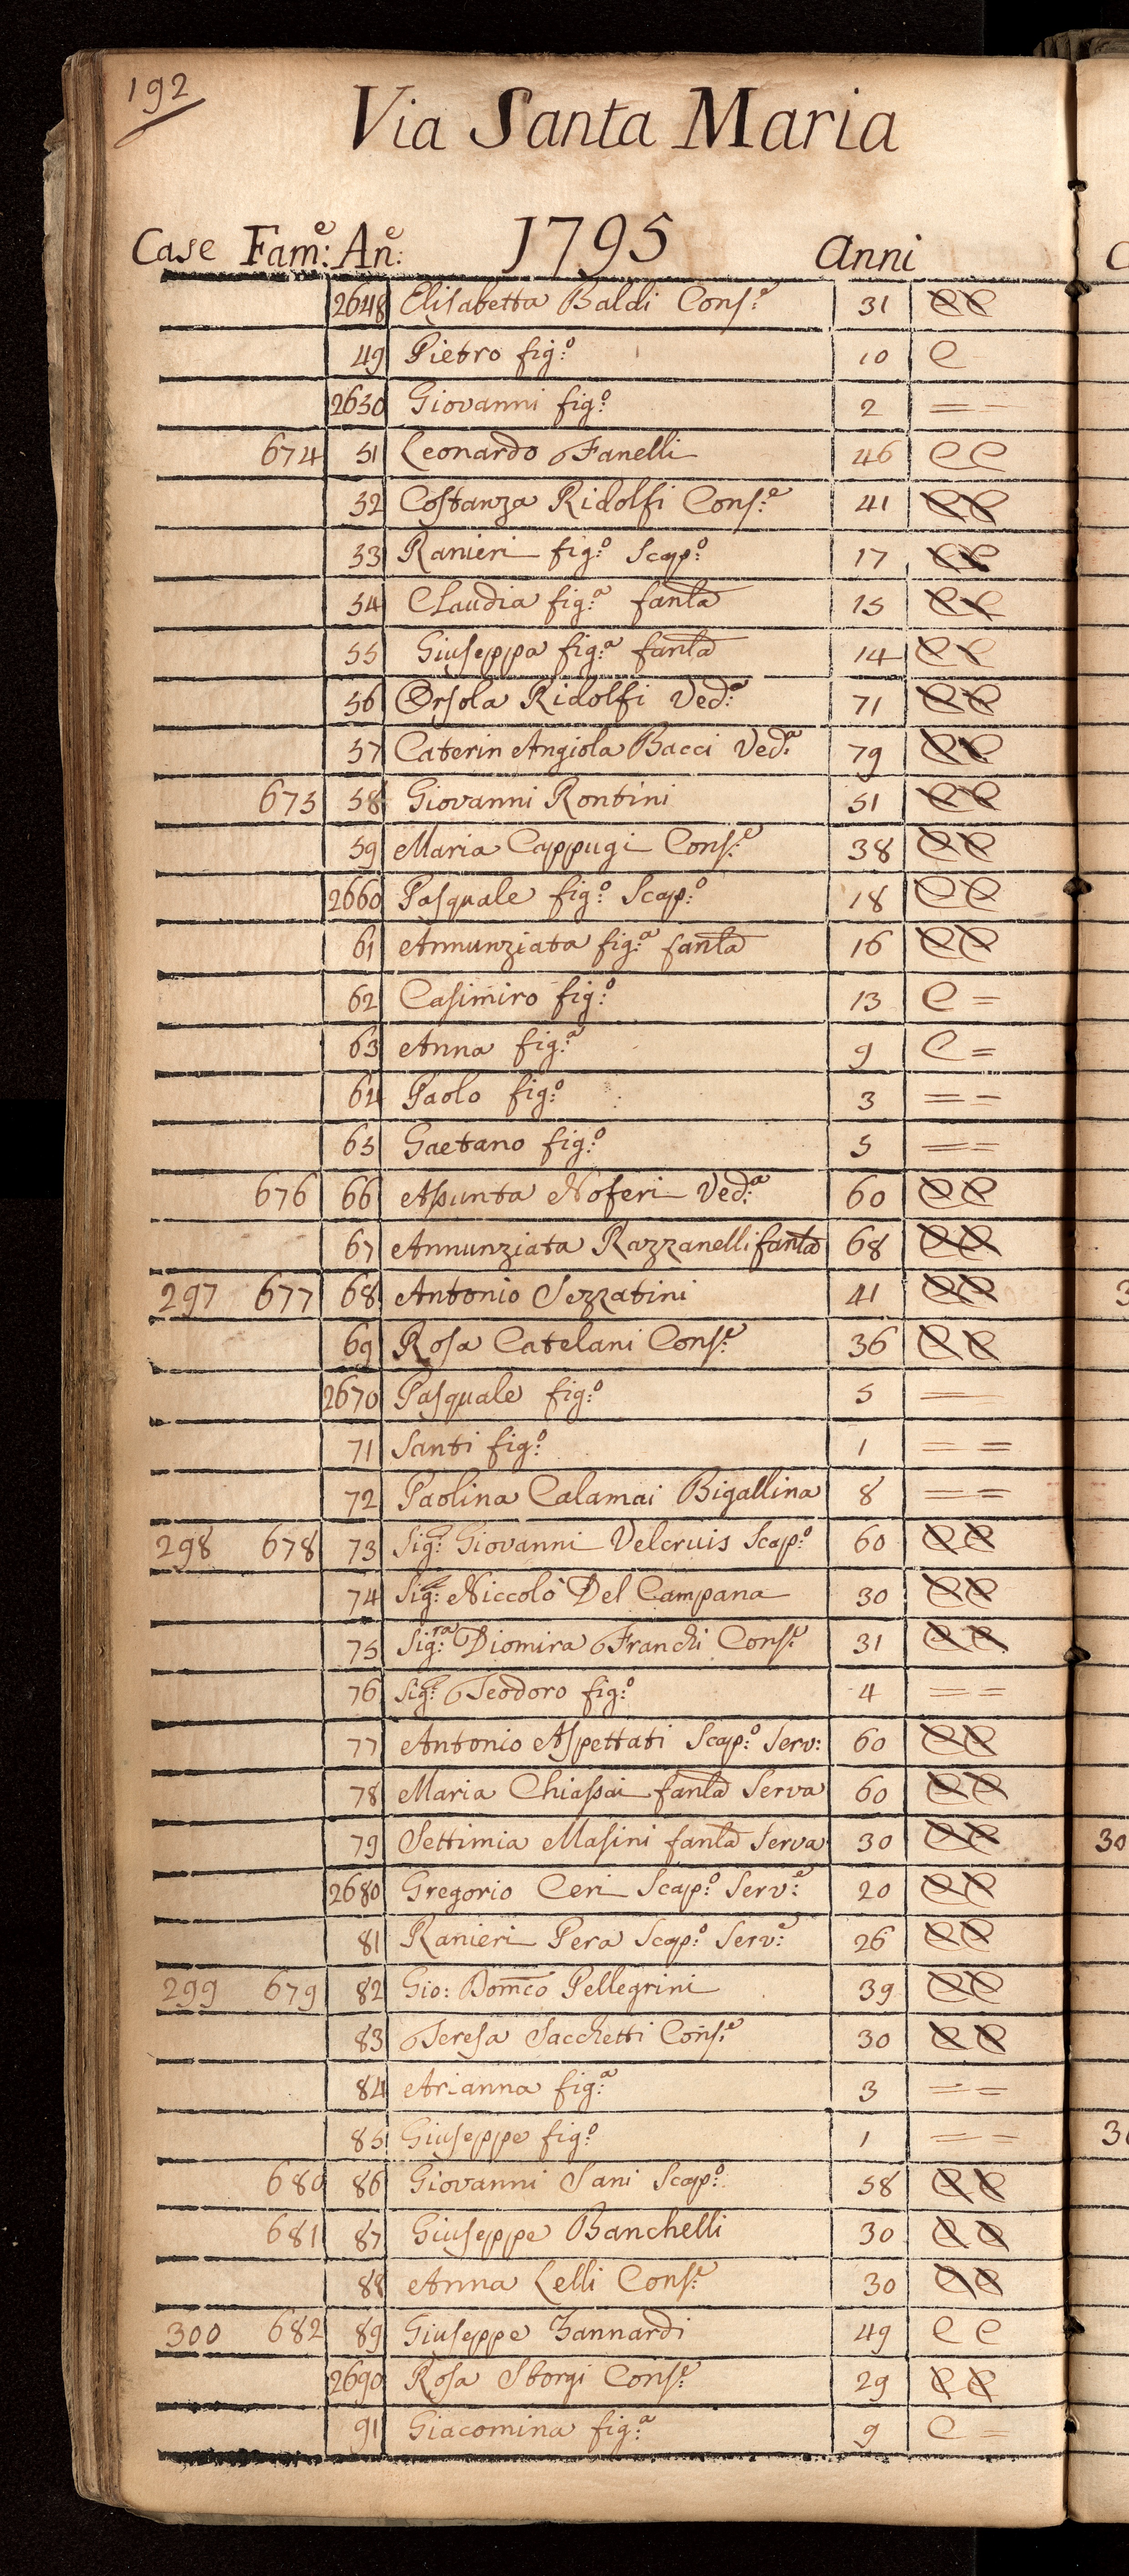 192
Via Santa Maria
Case Fam:e An:e 1795 Anni
2648 Elisabetta Baldi Cons:e 31 CC
49 Pietro fig:o 10 C
2650 Giovanni fig:o 2 = =
674 51 Leonardo Fanelli 46 CC
52 Costanza Ridolfi Cons:e 41 CC
53 Ranieri fig:o Scap:o 17 CC
54 Claudia fig:a fanla 15 CC
55 Giuseppa fig:a fanla 14 CC
56 Orsola Ridolfi Ved:a 71 CC
57 Caterin Angiola Bacci Ved:a 79 CC
675 58 Giovanni Rontini 51 CC
59 Maria Cappugi Cons:e 38 CC
2660 Pasquale fig:o Scap:o 18 CC
61 Annunziata fig:a fanla 16 CC
62 Casimiro fig:o 13 C =
63 Anna fig:a 9 C =
64 Paolo fig:o 3 = =
65 Gaetano fig:o 5 = =
676 66 Assunta Noferi Ved:a 60 CC
67 Annunziata Razzanelli fanla 68 CC
297 677 68 Antonio Sezzatini 41 CC
69 Rosa Catelani Cons:e 36 CC
2670 Pasquale fig:o 5 = =
71 Santi fig:o 1 = =
72 Paolina Calamai Bigallina 8 = =
298 678 73 Sig:r Giovanni Velcruis Scap:o 60 CC
74 Sig:r Niccolò Del Campana 30 CC
75 Sig:ra Diomira Franchi Cons:e 31 CC
76 Sig:r Teodoro fig:o 4 = =
77 Antonio Aspettati Scap:o Serv: 60 CC
78 Maria Chiassai fanla Serva 60 CC
79 Settimia Masini fanla Serva 30 CC
2680 Gregorio Ceri Scap:o Serv:e 20 CC
81 Ranieri Pera Scap:o Serv:e 26 CC
299 679 82 Gio: Domco Pellegrini 39 CC
83 Teresa Sacchetti Cons:e 30 CC
84 Arianna fig:a 3 = =
85 Giuseppe fig:o 1 = =
680 86 Giovanni Sani Scap:o 58 CC
681 87 Giuseppe Banchelli 30 CC
88 Anna Lelli Cons:e 30 CC
300 682 89 Giuseppe Zannardi 49 CC
2690 Rosa Storgi Cons:e 29 CC
91 Giacomina fig:a 9 C =